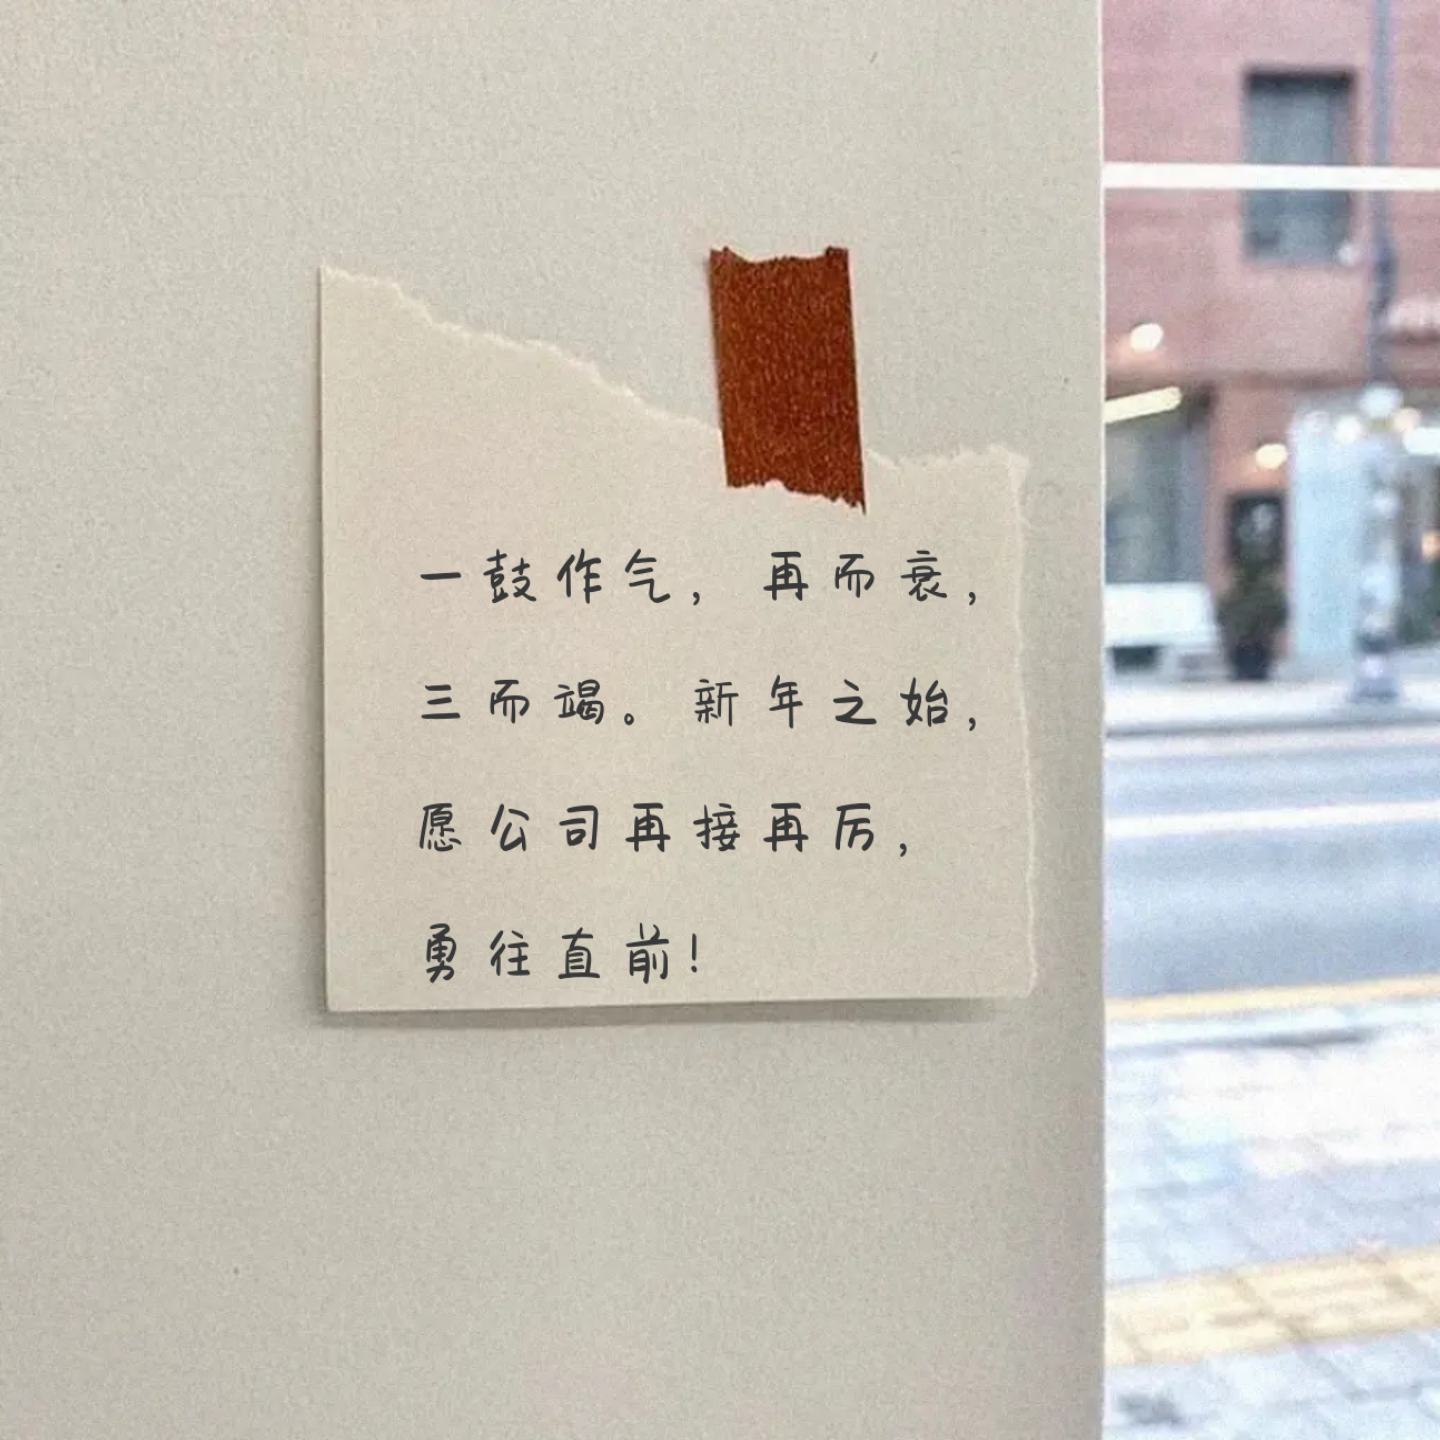 一鼓作气，再而衰，
三而竭。新年之始，
愿公司再接再厉，
勇往直前！